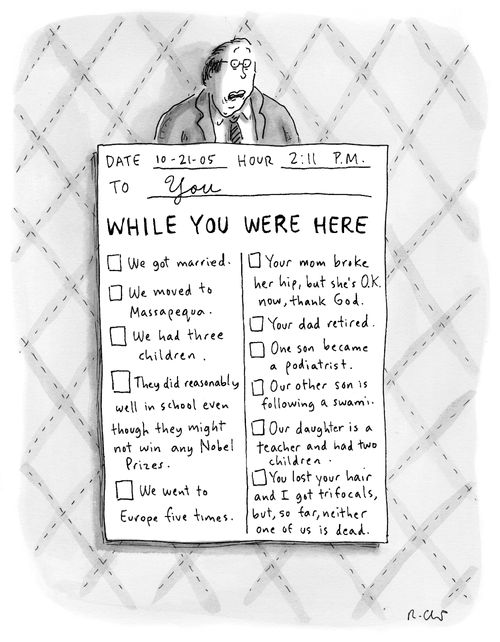 DATE 10-21-05 HOUR 2:11 P.M.
TO You
WHILE YOU WERE HERE
We got married.
We moved to
Massapequa.
We had three
children.
They did reasonably
well in school even
though they might
not win any Nobel
Prizes.
We went to
Europe five times.
Your mom broke
her hip, but she's O.K.
now, thank God.
Your dad retired.
One son became
a podiatrist.
Our other son is
following a swami.
Our daughter is a
teacher and had two
children.
You lost your hair
and I got trifocals,
but, so far, neither
one of us is dead.